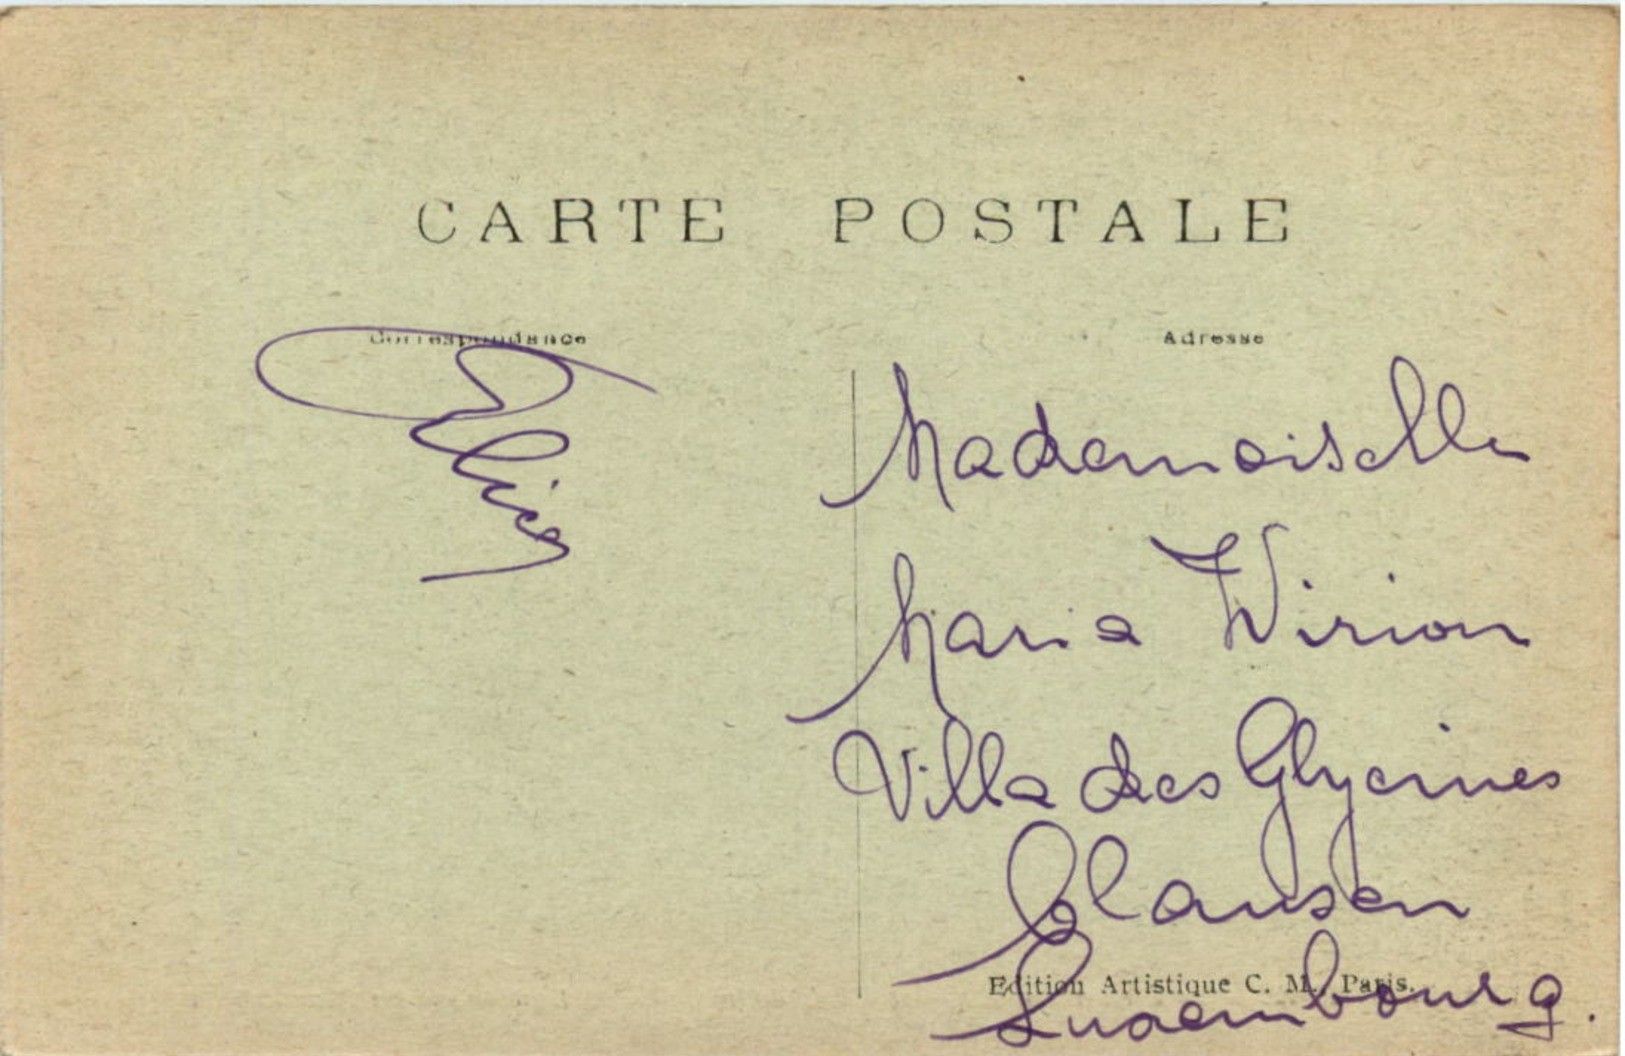 CARTE POSTALE
Correspondance
Adresse
Alice
Mademoiselle
Maria Wirion
Villa des Glycines
Clausen
Luxembourg.
Edition Artistique C. M. Paris.